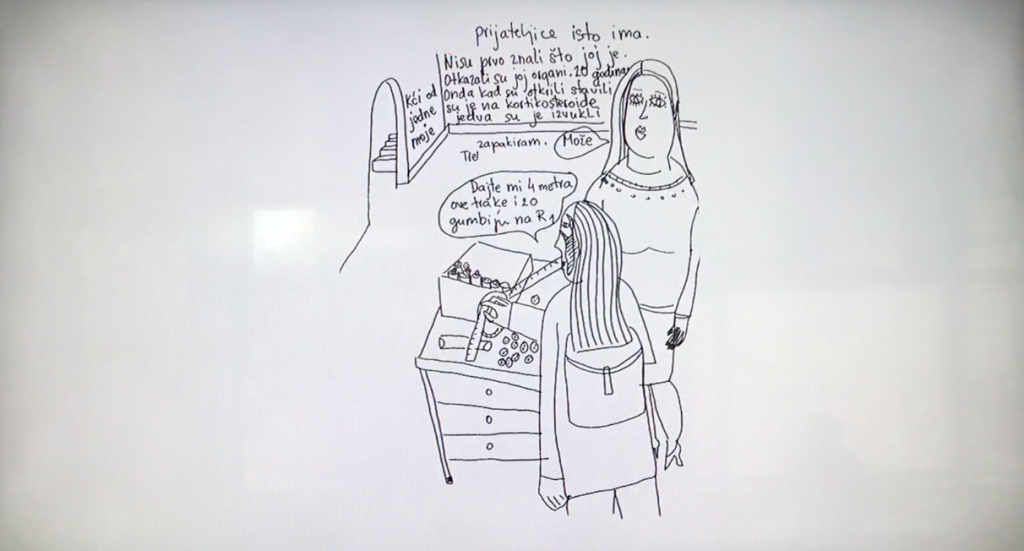 prijateljice isto ima.
Nisu prvo znali što joj je.
Otkazali su joj organi. 20 godina
Onda kad su otkrili stavili
su je na kortikosteroide
jedva su je izvukli
Kći od
jedne
moje
zapakiram.
Može
Dajte mi 4 metra
ove trake i 20
gumbiju na R1